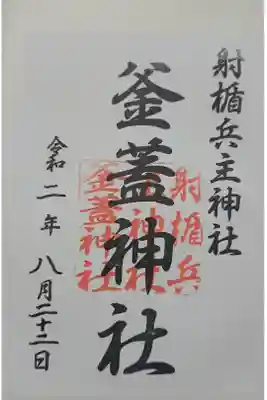 射楯兵主神社
釜蓋神社
射楯兵
主神社
釜蓋神社
令和二年八月二十二日